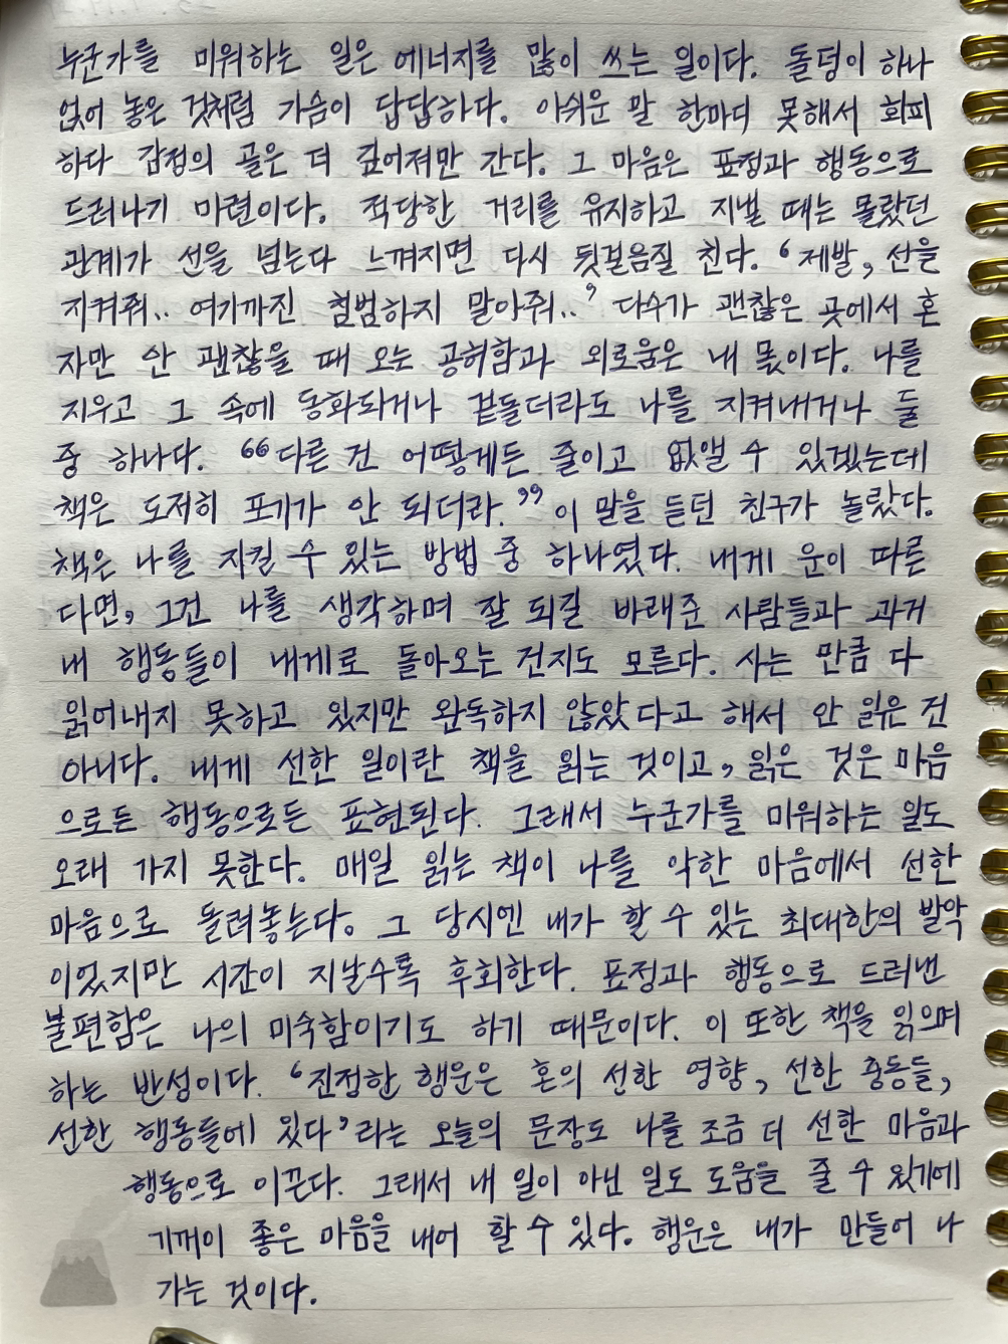 누군가를 미워하는 일은 에너지를 많이 쓰는 일이다. 돌덩이 하나
얹어 놓은 것처럼 가슴이 답답하다. 아쉬운 말 한마디 못해서 회피
하다 감정의 골은 더 깊어져만 간다. 그 마음은 표정과 행동으로
드러나기 마련이다. 적당한 거리를 유지하고 지낼 때는 몰랐던
관계가 선을 넘는다 느껴지면 다시 뒷걸음질 친다. ‘제발, 선을
지켜줘.. 여기까진 침범하지 말아줘..’ 다수가 괜찮은 곳에서 혼
자만 안 괜찮을 때 오는 공허함과 외로움은 내 몫이다. 나를
지우고 그 속에 동화되거나 겉돌더라도 나를 지켜내거나 둘
중 하나다. “다른 건 어떻게든 줄이고 없앨 수 있겠는데
책은 도저히 포기가 안 되더라.” 이 말을 듣던 친구가 놀랐다.
책은 나를 지킬 수 있는 방법 중 하나였다. 내게 운이 따른
다면, 그건 나를 생각하며 잘 되길 바래준 사람들과 과거
내 행동들이 내게로 돌아오는 건지도 모른다. 사는 만큼 다
읽어내지 못하고 있지만 완독하지 않았다고 해서 안 읽은 건
아니다. 내게 선한 일이란 책을 읽는 것이고, 읽은 것은 마음
으로든 행동으로든 표현된다. 그래서 누군가를 미워하는 일도
오래 가지 못한다. 매일 읽는 책이 나를 악한 마음에서 선한
마음으로 돌려놓는다. 그 당시엔 내가 할 수 있는 최대한의 발악
이었지만 시간이 지날수록 후회한다. 표정과 행동으로 드러낸
불편함은 나의 미숙함이기도 하기 때문이다. 이 또한 책을 읽으며
하는 반성이다. ‘진정한 행운은 혼의 선한 영향, 선한 충동들,
선한 행동들에 있다’라는 오늘의 문장도 나를 조금 더 선한 마음과
행동으로 이끈다. 그래서 내 일이 아닌 일도 도움을 줄 수 있기에
기꺼이 좋은 마음을 내어 할 수 있다. 행운은 내가 만들어 나
가는 것이다.